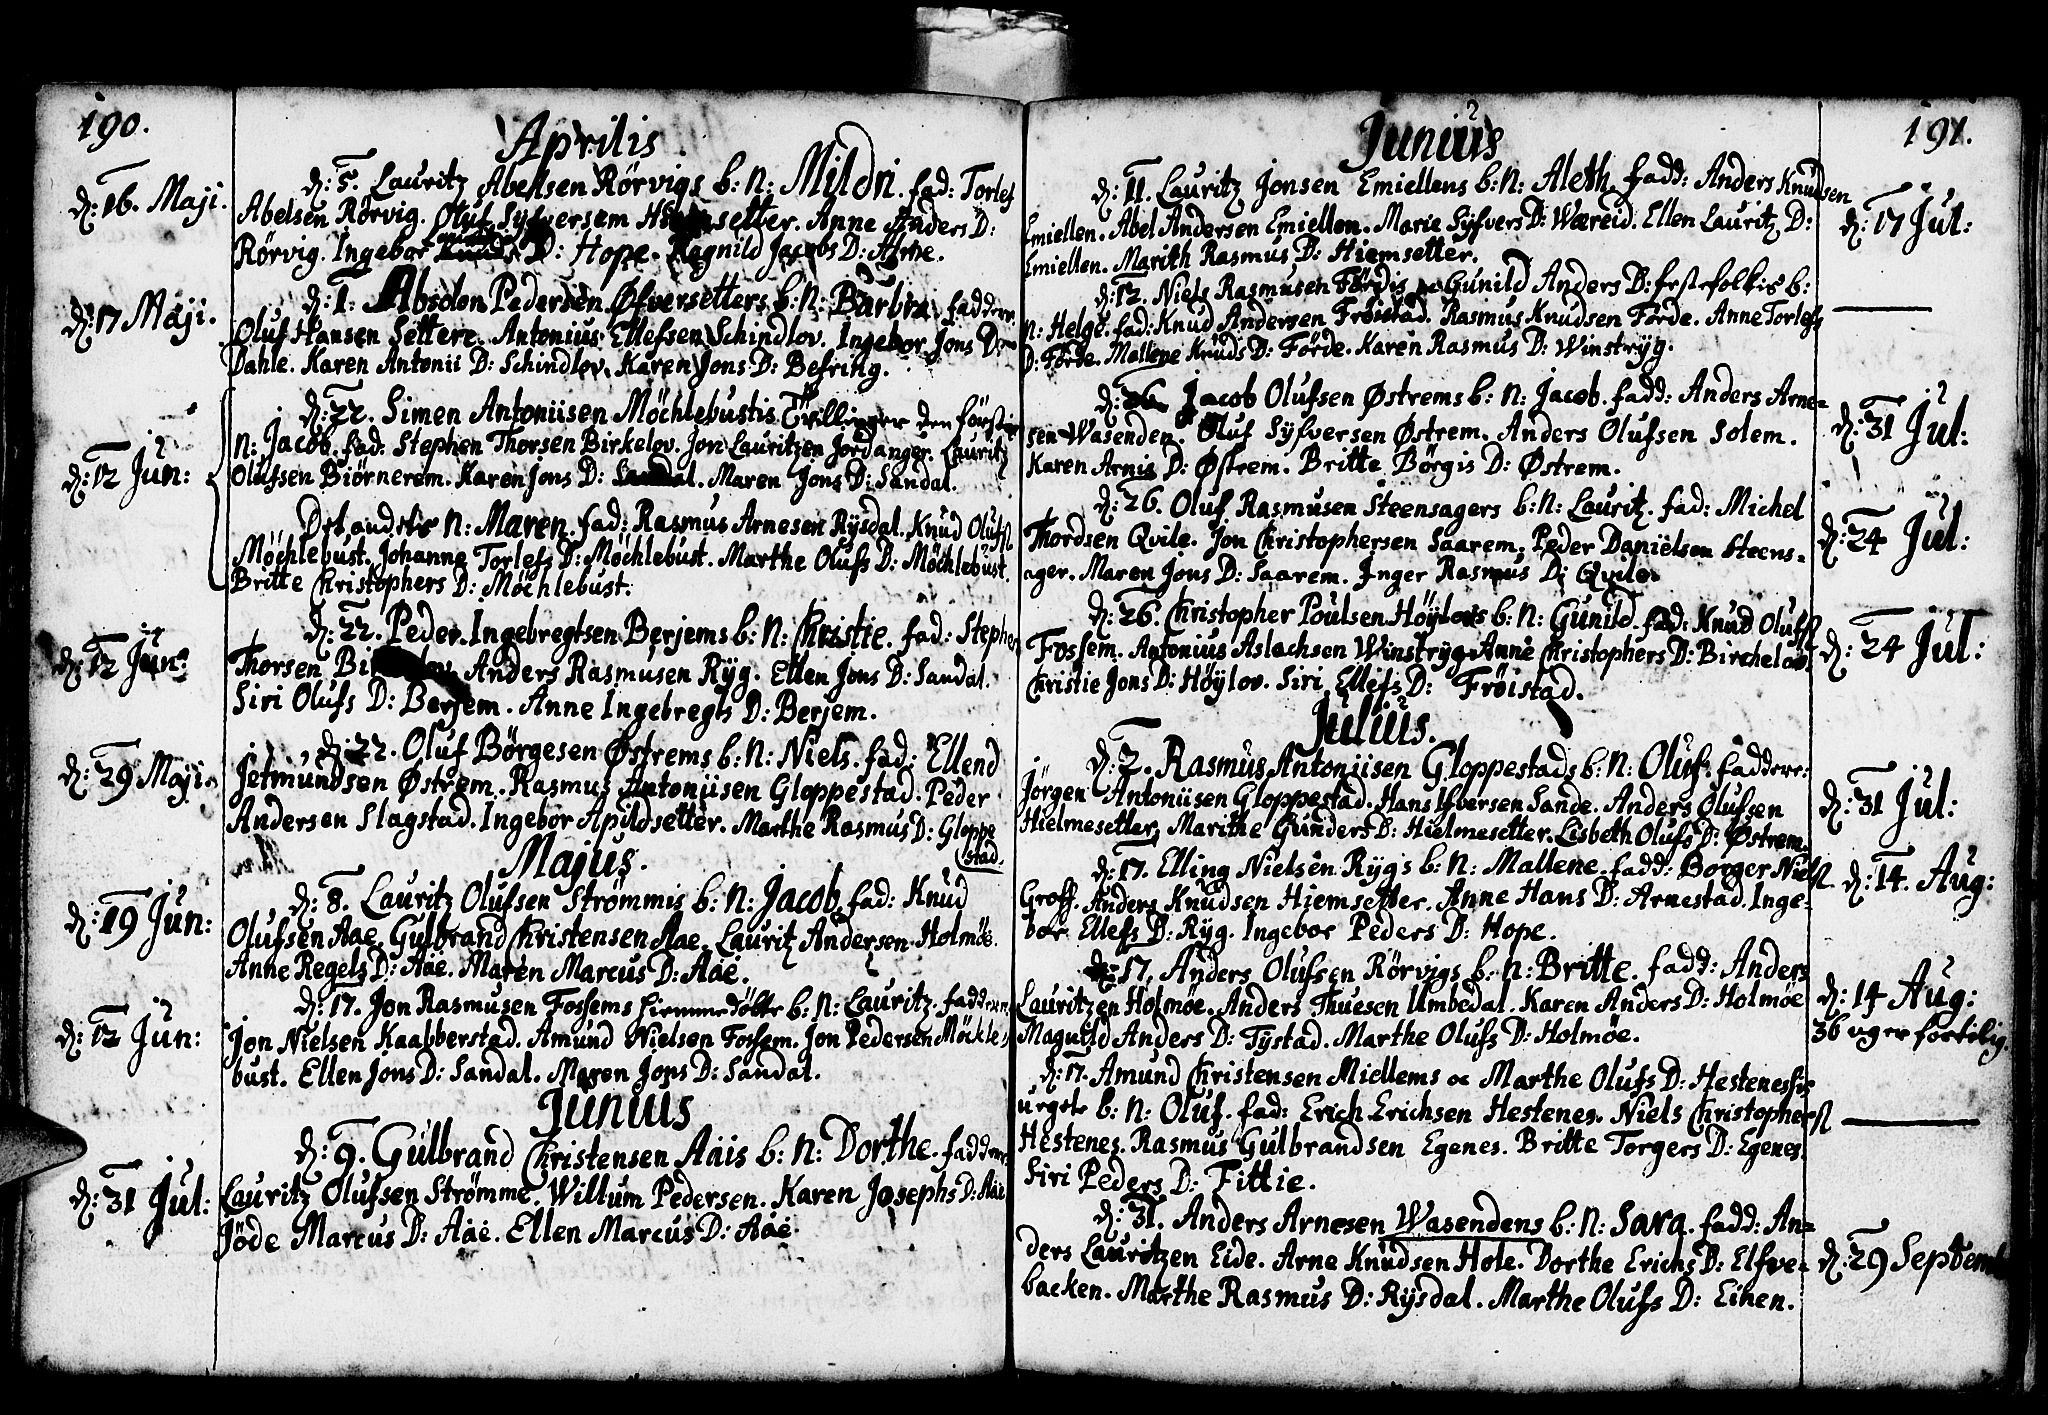 190.
Aprilis
d: 16. Maji.
d: 5. Lauritz Abelsen Rörvigs b: n: Mildri. fad: Torlef
Abelsen Rörvig. Oluf Sylversem setter. Anne Anders D:
Rörvig. Ingebor D: Hope. Ragnild Jacobs D: Arne.
d: 17 Maji.
d: 1. Absolon Pedersen Øfversetters b: n: Barbra faddere:
Oluf Hansen Settere. Antonius Ellefsen Schindlov. Ingebor Jons D:
Dahle. Karen Antonii D: Schindlov. Karen Jons D: Befring.
d: 12 Jun:
d: 22. Simen Antoniisen Möchlebustis Tvillinger den förste
n: Jacob. fad: Stephen Thorsen Birkelov. Jon Lauritzen Jordanger. Lauritz
Olufsen Biörnerem. Karen Jons D: Sandal. Maren Jons D: Sandal.
Det andetis n: Maren. fad: Rasmus Arnesen Rysdal. Knud Olufs
Möchlebust. Johanne Torlefs D: Möchlebust. Marthe Olufs D: Möchlebust.
Britte Christophers D: Möchlebust.
d: 12 Jun:
d: 22. Peder Ingebregtsen Berjems b: n: Christie. fad: Stephen
Thorsen Anders Rasmusen Ryg. Ellen Jons D: Sandal.
Siri Olufs D: Berjem. Anne Ingebregts D: Berjem.
d: 29 Maji.
d: 22. Oluf Börgesen Østrems b: n: Niels. fad: Ellend
Jetmundsen Østrem. Rasmus Antoniisen Gloppestad. Peder
Andersen Slagstad. Ingebor Apildsetter. Marthe Rasmus D: Gloppe
(stad.
Majus.
d: 19 Jun:
d: 8. Lauritz Olufsen Strømmis b: n: Jacob. fad: Knud
Olufsen Aae. Gulbrand Christensen Aae. Lauritz Andersen Holmöe.
Anne Regels D: Aae. Maren Marcus D: Aae.
d: 12 Jun:
d: 17. Jon Rasmusen Fossems hiemmedöbte b: n: Lauritz. faddere:
Jon Nielsen Kaabberstad. Amund Nielsen Fossem. Jon Pedersen Möckle-
bust. Ellen Jons D: Sandal. Maren Jons D: Sandal.
Junius
d: 31 Jul:
d: 9. Gulbrand Christensen Aais b: n: Dorthe. faddere:
Lauritz Olufsen Strømme. Willum Pedersen. Karen Josephs D: Aae
Jöde Marcus D: Aae. Ellen Marcus D: Aae.
191.
Junius
d: 11. Lauritz Jonsen Emiellens b: n: Aleth. fadd: Anders Knudsen
Emiellen. Abel Andersen Emiellen. Marie Sylvers D: Wæreid. Ellen Lauritz D:
Emiellen. Marith Rasmus D: Hiemsetter.
d: 17 Jul:
d: 12. Niels Rasmusen Fördis oc Gunild Anders D: festefolkis b:
n: Helge. fad: Knud Andersen Frøistad. Rasmus Knudsen Förde. Anne Torlefs
D: Förde. Mallene Knuds D: Förde. Karen Rasmus D: Winstryg.
d: 26. Jacob Olufsen Østrems b: n: Jacob. fadd: Anders Arne-
sen Wasenden. Oluf Sylversen Østrem. Anders Olufsen Solem.
Karen Arnis D: Østrem. Britte Börgis D: Østrem.
d: 31 Jul:
d: 26. Oluf Rasmusen Steensagers b: n: Lauritz. fad: Michel
Thordsen Qvile. Jon Christophersen Saarem. Peder Daniëlsen Steens-
ager. Maren Jons D: Saarem. Inger Rasmus D: Qvile.
d: 24 Jul:
d: 26. Christopher Poulsen Höylovs b: n: Gunild. fad: Knud Olufs
Fossem. Antonius Aslachsen Winstryg. Anne Christophers D: Birchelov.
Christie Jons D: Höylov. Siri Ellefs D: Frøistad.
d: 24 Jul:
Julius.
d: 2. Rasmus Antoniisen Gloppestads b: n: Oluf. faddere:
Jörgen Antoniisen Gloppestad. Hans Ifversen Sande. Anders Olufsen
Hielmesetter. Marithe Gunders D: Hielmesetter. Lisbeth Olufs D: Østrem.
d: 31 Jul:
d: 17. Elling Nielsen Rygs b: n: Mallene. fadd: Borger Niels
Groff. Anders Knudsen Hjemsetter. Anne Hans D: Arnestad. Inge-
bor Ellefs D: Ryg. Ingebor Peders D: Hope.
d: 14. Aug:
d: 17. Anders Olufsen Rörvigs b: n: Britte. fadd: Anders
Lauritzen Holmöe. Anders Thuesen Umbedal. Karen Anders D: Holmöe
Magnild Anders D: Tystad. Marthe Olufs D: Holmöe.
d: 14 Aug:
36 uger fortilig.
d: 17. Amund Christensen Miellems oc Marthe Olufs D: Hestenessis
uegte b: n: Oluf. fad: Erich Erichsen Hestenes. Niels Christophers
Hestenes. Rasmus Gulbrandsen Egenes. Britte Torgers D: Egenes.
Siri Peders D: Fittie.
d: 31. Anders Arnesen Wasendens b: n: Sara. fadd: An-
ders Lauritzen Eide. Arne Knudsen Hole. Dorthe Erichs D: Elfve-
backen. Marthe Rasmus D: Rysdal. Marthe Olufs D: Eihen.
d: 29 Septemb